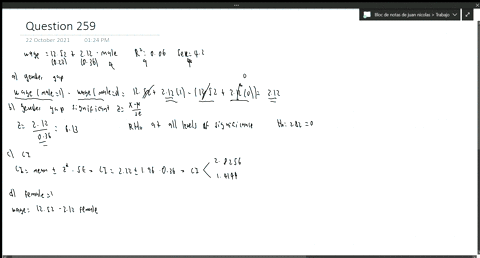 Bloc de notas de juan nicolas » Trabajo
Question 259
22 October 2021 01:24 PM
wage = 12.52 + 2.12 · male R²: 0.06 SER= 4.2
(0.23) (0.36)
a) gender gap
wage(male=1) - wage(male=0)= 12.52 + 2.12(1) - (12.52 + 2.12(0))= 2.12
b) gender gap significant z= x-μ/se
z= 2.12/0.36 = 6.13 RH0 at all levels of significance
c) CI
CI = mean ± z* · SE = CI = 2.12 ± 1.96 · 0.36 = CI
d) female=1
wage= 12.52 - 2.12 female